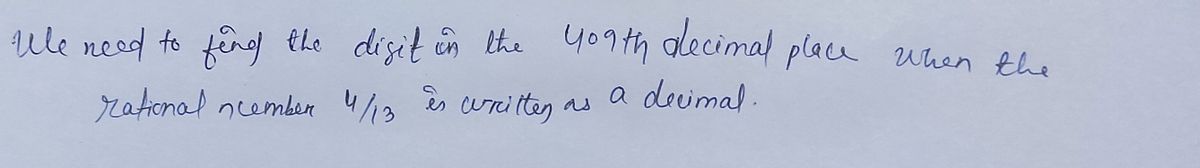 We need to find the digit in the 409th decimal place when the
rational number 4/13 is written as a decimal.